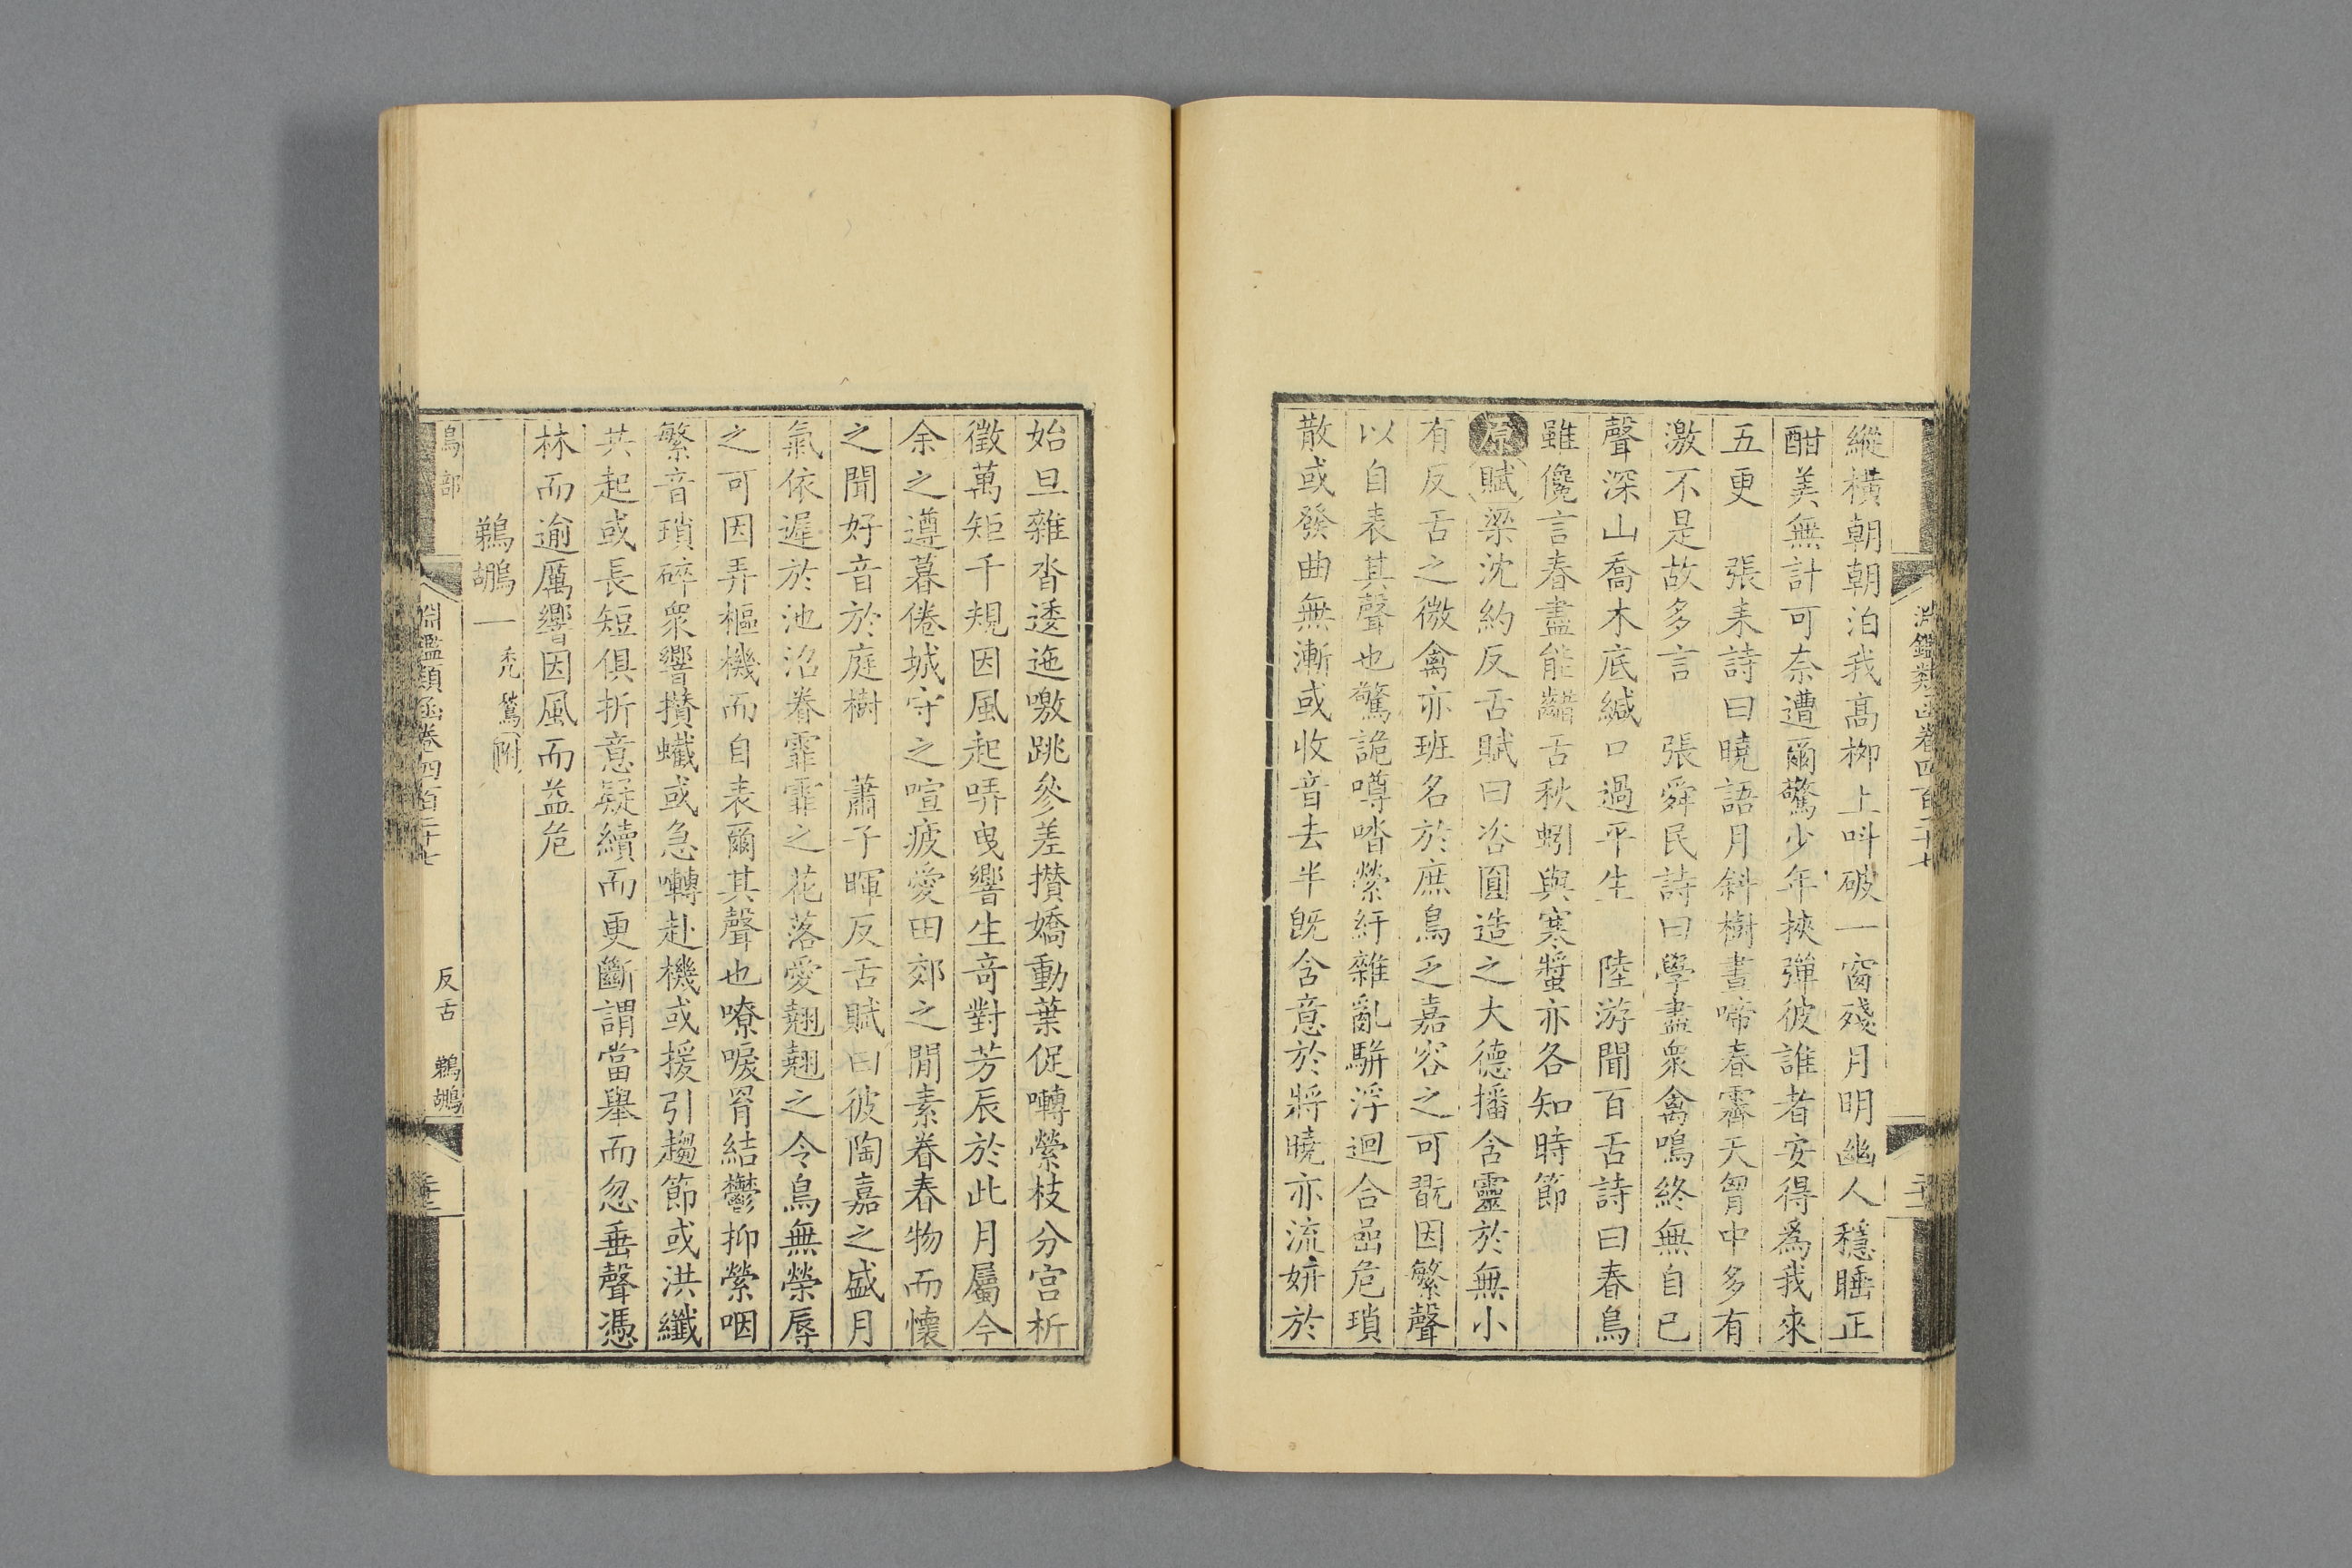 縱橫朝朝泊我高柳上呌破一窗殘月明幽人穩睡正
酣美無計可奈遭爾驚少年挾彈彼誰者安得為我來
五更　張耒詩曰曉語月斜樹晝啼春霽天胷中多有
激不是故多言　張舜民詩曰學盡衆禽鳴終無自已
聲深山喬木底緘口過平生　陸游聞百舌詩曰春鳥
雖儳言春盡能齰舌秋蚓與寒螿亦各知時節
原賦梁沈約反舌賦曰咨圓造之大德播含靈於無小
有反舌之微禽亦班名於庶鳥乏嘉容之可翫因繁聲
以自表其聲也驚詭噂喈縈紆雜亂駢浮迴合嵒危瑣
散或發曲無漸或收音去半旣含意於將曉亦流妍於
始旦雜沓逶迤噭跳參差攅嬌動葉促囀縈枝分宮析
徵萬矩千規因風起哢曳響生奇對芳辰於此月屬今
余之遵暮倦城守之喧疲愛田郊之閒素眷春物而懷
之聞好音於庭樹　蕭子暉反舌賦曰彼陶嘉之盛月
氣依遲於池沼眷霏霏之花落愛翹翹之令鳥無榮辱
之可因弄樞機而自表爾其聲也嘹唳胷結鬱抑縈咽
繁音瑣碎衆響攢巇或急囀赴機或援引趨節或洪纖
共起或長短俱折意疑續而更斷謂當舉而忽垂聲憑
林而逾厲響因風而益危
鵜鶘一　禿鶖附
鳥部
淵鑑類函卷四百二十七
反舌　鵜鶘